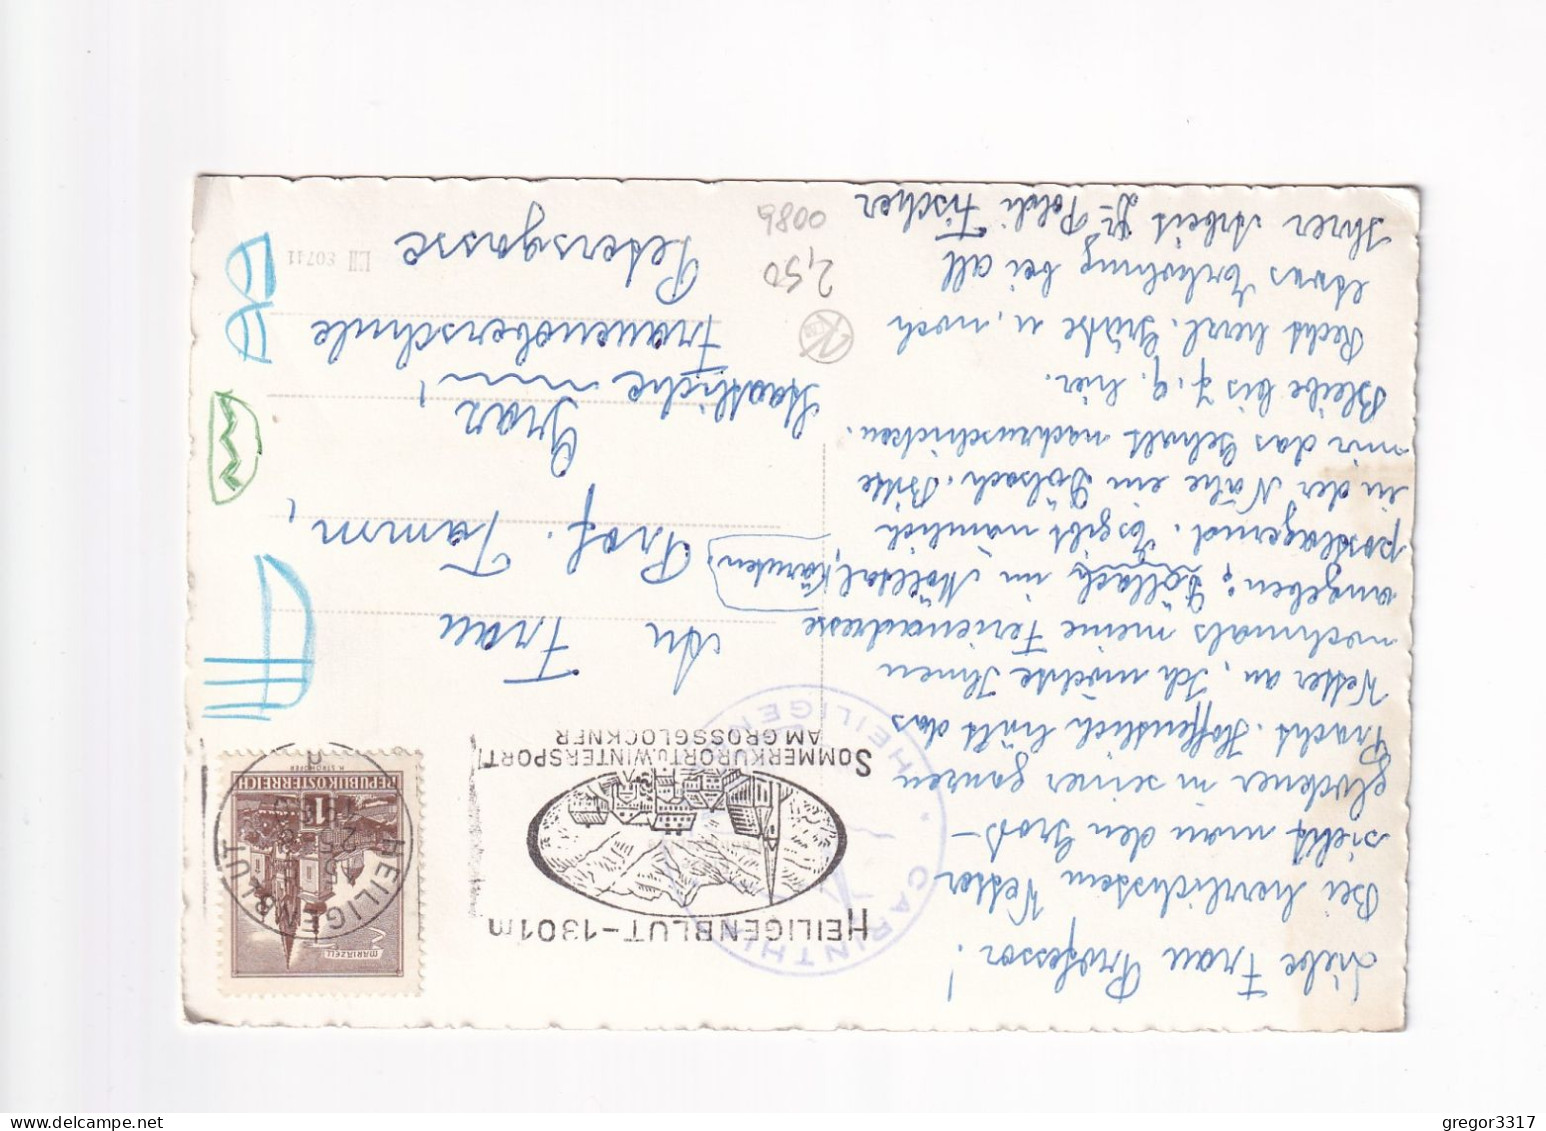 Liebe Frau Professor!
Bei herrlichstem Wetter
sieht man den Groß-
glockner in seiner ganzen
Pracht. Hoffentlich hält das
Wetter an, Ich möchte Ihnen
nochmals meine Ferienadresse
angeben: Döllach im Mölltal, Kärnten.
postlagernd. Es gibt nämlich
in der Nähe ein Dölsach. Bitte
mir das Gehalt nachzuschicken.
Bleibe bis 7. 9. hier.
Recht herzl. Grüße u. noch
etwas Erholung bei all
Ihrer Arbeit Poldi Fischer
HEILIGENBLUT-1301m
SOMMERKURORT u WINTERSPORT
AM GROSSGLOCKNER
HEILIGENBLUT
MARIAZELL
1
REPUBLIK ÖSTERREICH
HEILIGEN
CARINTHI
An
Frau
Prof. Tamm,
Graz,
Staatliche
Frauenoberschule
Petersgasse
2,50
E0711
gregor3317